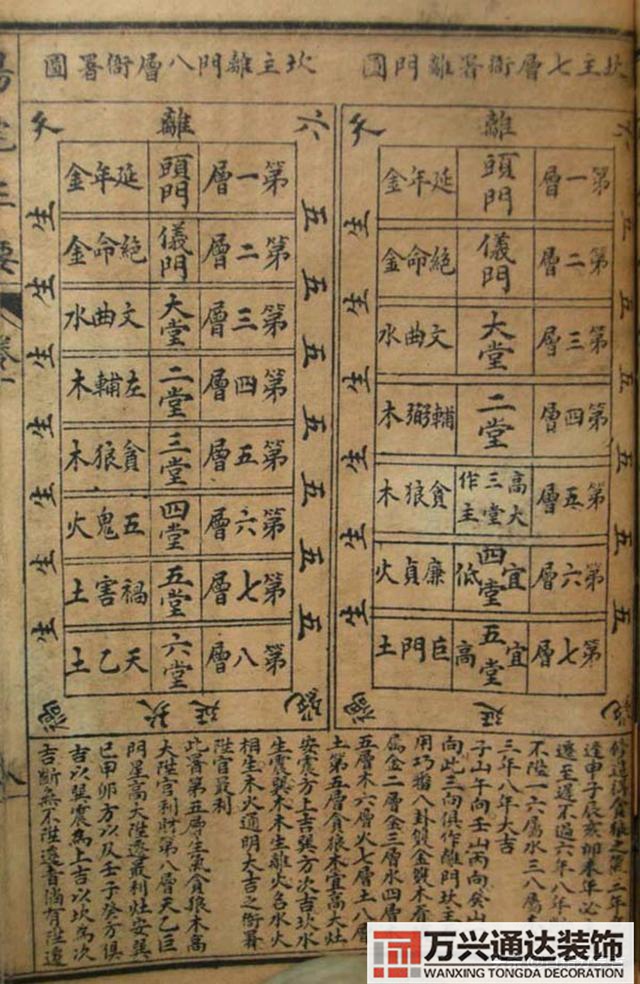 坎主七層衙署離門圖
離 天
第一層 頭門 延年金
第二層 儀門 絕命金
第三層 大堂 文曲水
第四層 二堂 輔弼木
第五層 高大三堂作主 貪狼木
第六層 宜四堂低 廉貞火
第七層 宜五堂高 巨門土
五 五 五 五 五 五
生 生 生 生 生 生
延 禍
坎主離門八層衙署圖
六 離 天
第一層 頭門 延年金
第二層 儀門 絕命金
第三層 大堂 文曲水
第四層 二堂 左輔木
第五層 三堂 貪狼木
第六層 四堂 五鬼火
第七層 五堂 禍害土
第八層 六堂 天乙土
五 五 五 五 五 五 五
生 生 生 生 生 生 生
延 禍
逢申子辰亥卯未年必
遷至遲不過六年八年
不陞一六屬水三八屬
三年八年大吉
子山午向壬山丙向癸山
向此三向俱作離門坎主
用巧番八卦變金變木看
屬金二層金三層水四層
五層木六層火七層土八層
土第五層貪狼木宜高大灶
安震方上吉巽方次吉坎水
生震巽木木生離火名水火
相生木火通明大吉之衙署
陞官最利
此署第五層生氣貪狼木高
大陞官利財第八層天乙巨
門星高大陞遷最利灶安巽
巳甲卯方以及壬子癸方俱
吉以巽震為上吉以坎為次
吉斷無不陞遷者倘有陞遷
万兴通达装饰
WANXING TONGDA DECORATION